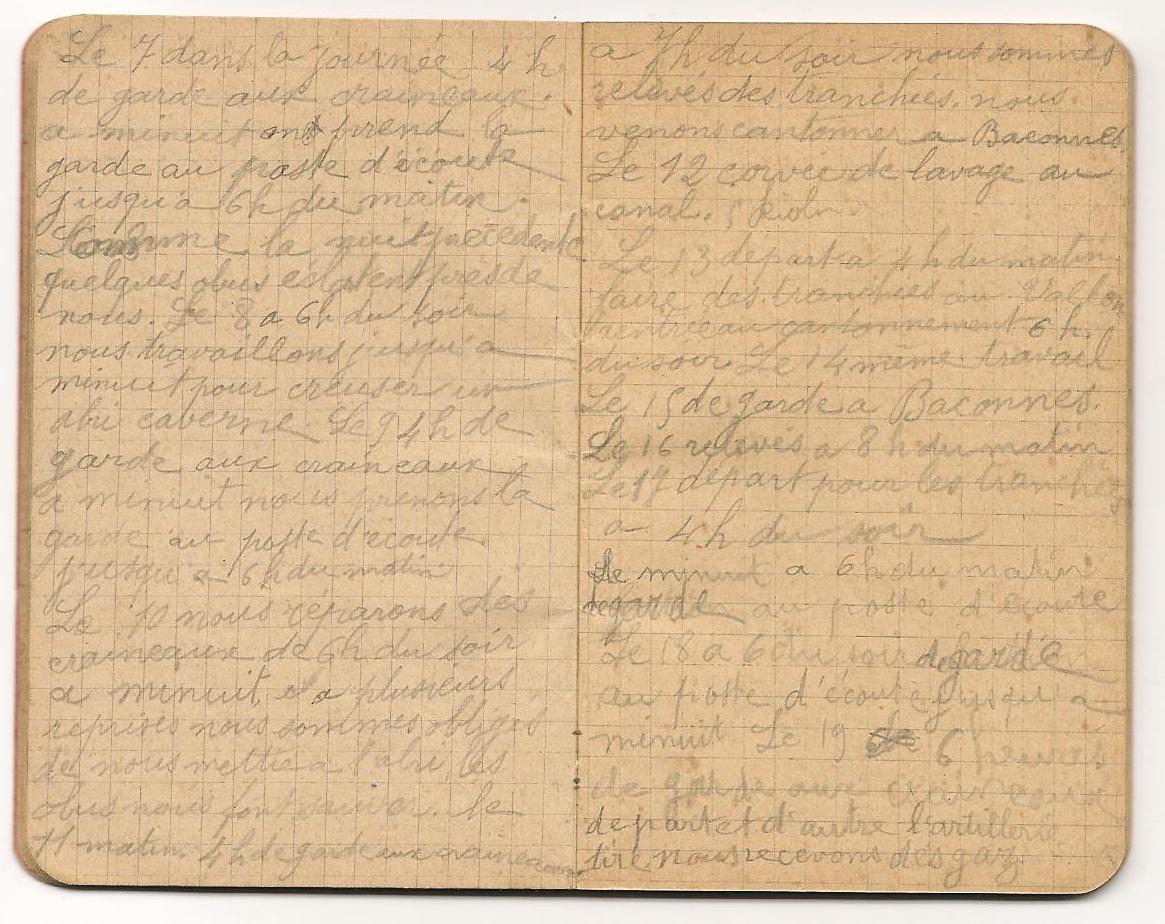 Le 7 dans la journée 4 h
de garde aux craineaux.
a minuit ont prend la
garde au poste d'écoute
jusqu'a 6h du matin.
Comme la nuit précédente
quelques obus éclatent près de
nous. Le 8 a 6h du soir
nous travaillons jusqu'a
minuit pour creuser un
abri caverne. Le 9 4h de
garde aux craineaux,
a minuit nous prenons la
garde au poste d'écoute
jusqu'a 6h du matin
Le 10 nous réparons des
craineaux de 6h du soir
a minuit, et a plusieurs
reprises nous sommes obligés
de nous mettre a l'abri, les
obus nous font sauver. le
11 matin. 4h de garde aux craineaux
a 7h du soir nous sommes
relevés des tranchées. nous
venons cantonner a Baconnes.
Le 12 corvée de lavage au
canal. 5
Le 13 départ a 4h du matin
faire des tranchées au Vallon
rentrée au cantonnement 6 h.
du soir. Le 14 même travail
Le 15 de garde a Baconnes.
Le 16 relevés a 8 h du matin
Le 17 départ pour les tranchées
a 4h du soir
De minuit a 6h du matin
de garde au poste d'écoute
Le 18 a 6 du soir de garde
au poste d'écoute jusqu'a
minuit. Le 19 6 heures
de garde aux craineaux
de part et d'autre l'artillerie
tire, nous recevons des gaz